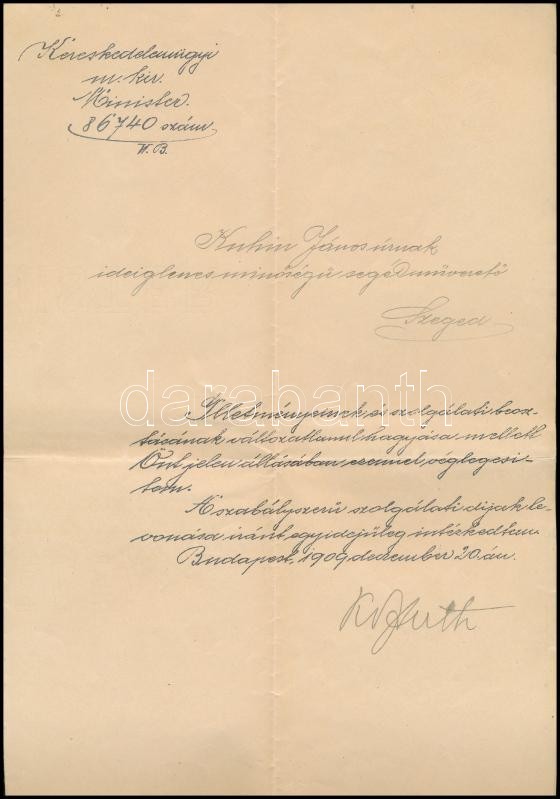 Kereskedelemügyi
m. kir.
Minister.
86740 szám
V. B.
Kuhin János úrnak
ideiglenes minőségű segédműveze​tő
Szeged
darabanth
Illetményeinek és szolgálati beosz-
tásának változatlanul hagyása mellett
Önt jelen állásában ezennel véglegesi-
tem.
A szabályszerű szolgálati díjak le-
vonása iránt egyidejűleg intézkedtem.
Budapest, 1909 dezember 20.án.
Kossuth